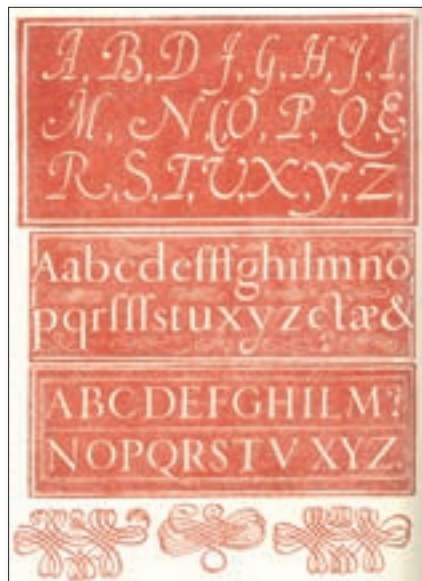 A, B, D, F, G, H, I, L,
M, N, O, P, Q, &
R, S, T, U, X, Y, Z,
Aabcdefffghilmno
pqrſſſstuxyzctæ&
ABCDEFGHILM?
NOPQRSTV XYZ.